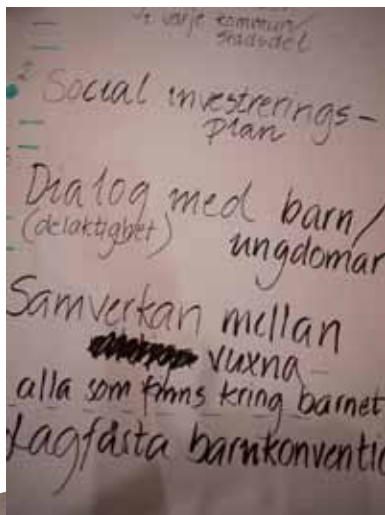 i varje kommun/
stadsdel
2
Social investrerings-
plan
Dialog med barn/
(delaktighet) ungdomar
Samverkan mellan
vuxna
alla som finns kring barnet
Lagfästa barnkonventio